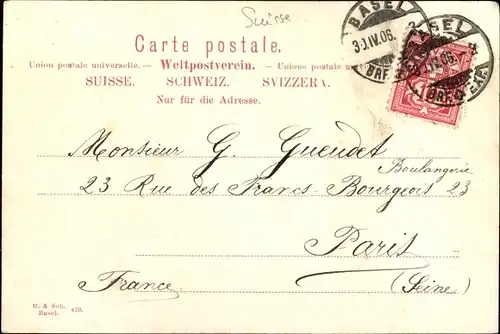 Suisse
Carte postale.
Union postale universelle. — Weltpostverein. — Unione postale
SUISSE. SCHWEIZ. SVIZZERA.
Nur für die Adresse.
BASEL
30.IV.06.
BASEL
IV.06.
Monsieur G. Gueudet
Boulangerie
23 Rue des Francs-Bourgeois 23
Paris
France (Seine)
M. & Sch.
Basel. 419.